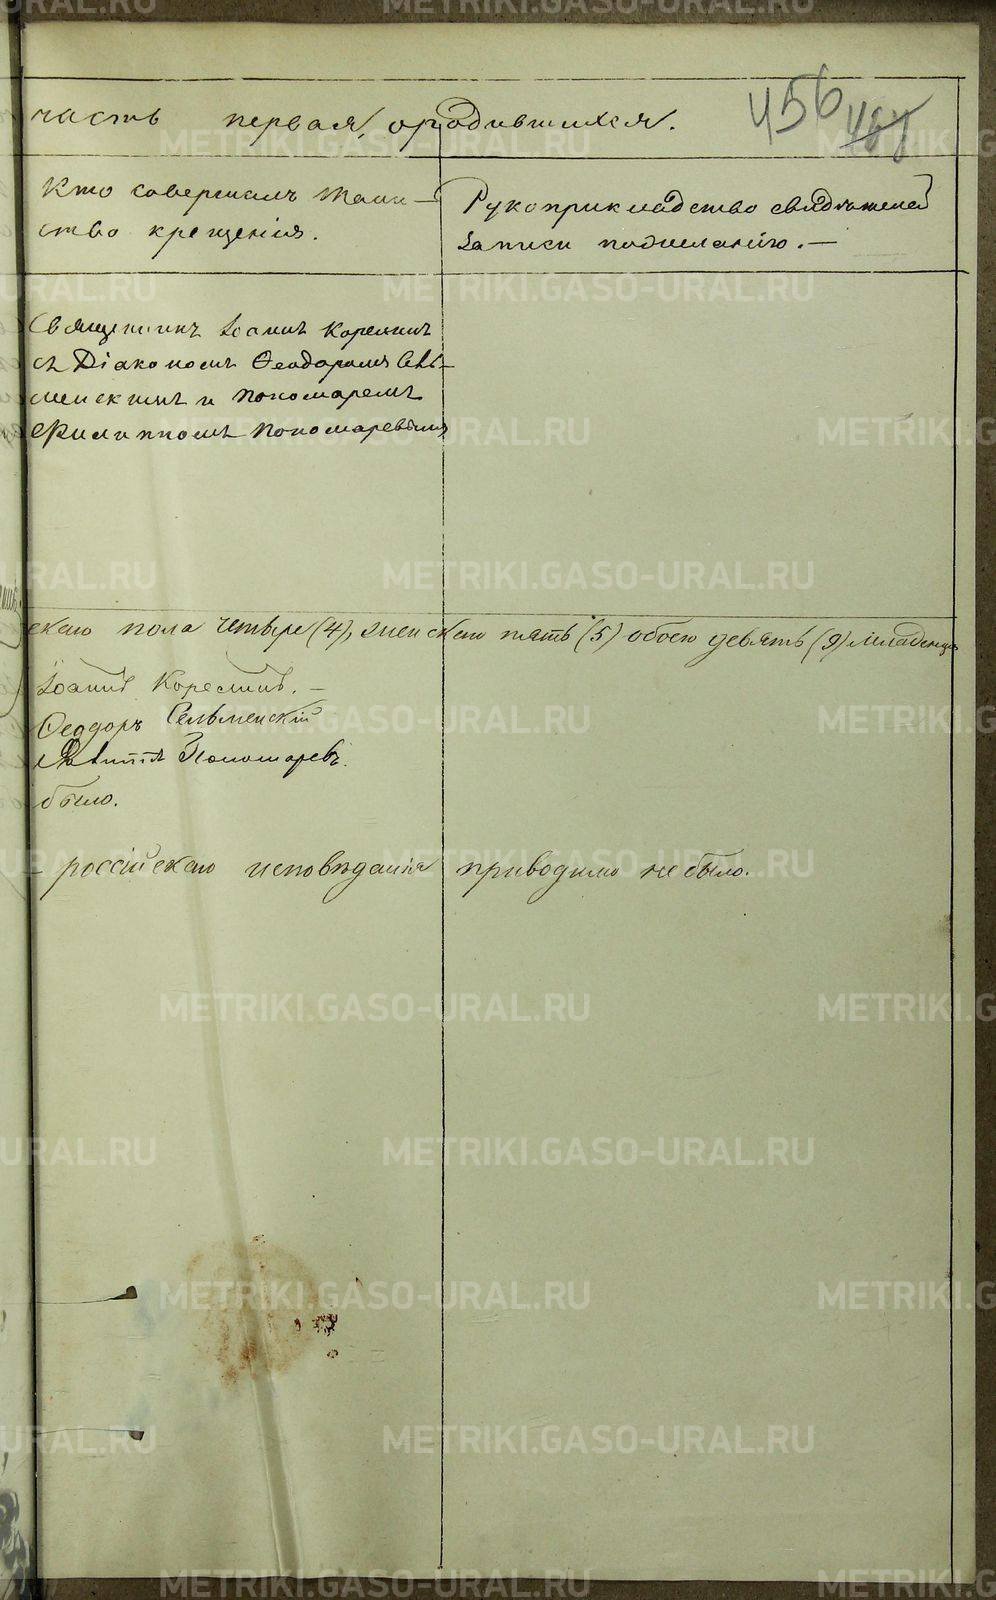 часть первая, ородившихся.
456
Кто совершалъ таин-
ство крещенія.
Рукоприкладство свидѣтелей
записи пожеланію.—
Священникъ Іоаннъ Корелинъ
съ Діакономъ Ѳеодоромъ Сель-
менскимъ и пономаремъ
Филиппомъ Пономаревымъ
скаго пола четыре (4), женскаго пять (5) обоего девять (9) младенцевъ
Іоаннъ Корелинъ.—
Ѳеодоръ Сельменскій
Филиппъ Пономаревъ.
было.
- россійскаго исповѣданія приводимо не было.
METRIKI.GASO-URAL.RU